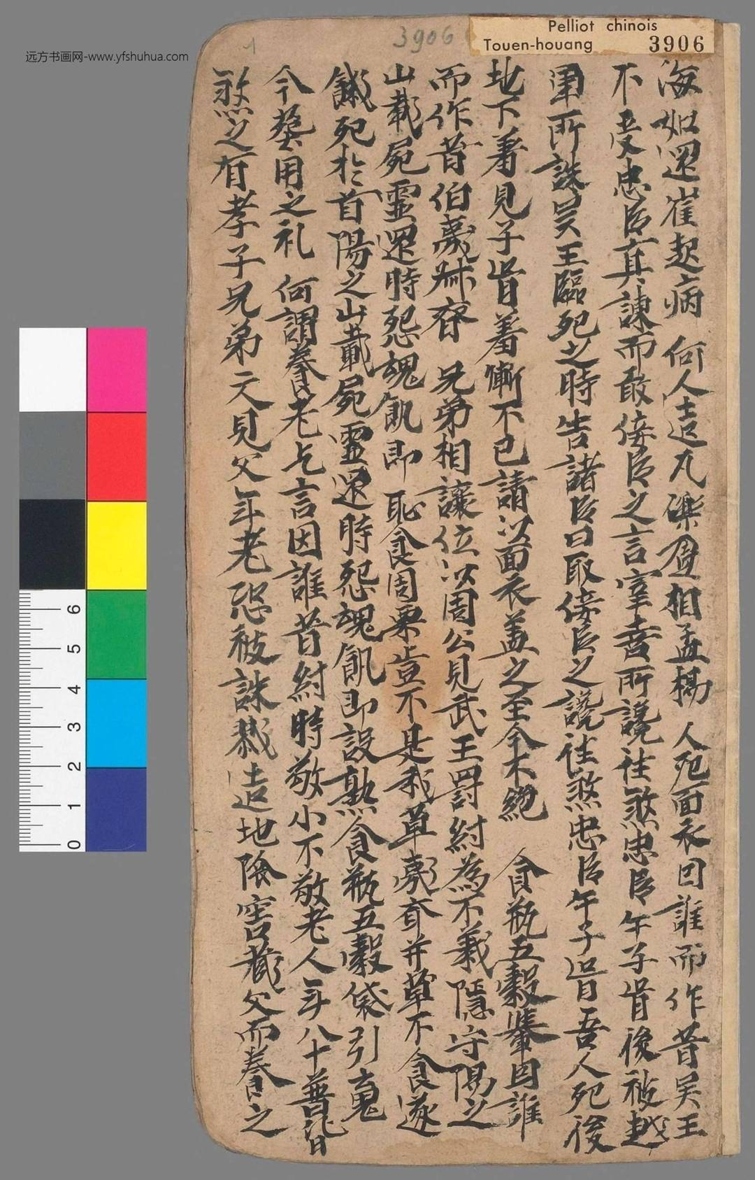 远方书画网-www.yfshuhua.com
Pelliot chinois
Touen-houang 3906
1
3906
海如還崔起病 何人造九 相孟 人死面衣因誰而作昔吴王
不受忠臣真諫而敢佞臣之言宰嚭所讒往煞忠臣午子胥後被越
軍所誅吴王臨死之時告諸臣曰取佞臣之讒往煞忠臣午子胥吾人死後
地下羞見子胥羞慚不已請以面衣盖之至今不絶 食瓶五穀轝因誰
而作昔伯夷叔齊 兄弟相讓位以周公見武王罰紂為不義隱守陽之
山載屍靈還時恐魂飢即 恥食周粟豈不是我草夷齊并草不食遂
餓死於首陽之山載屍靈還時恐魂飢即設熟食瓶五穀袋引䰟
今葬用之礼 何謂養老乞言因誰昔紂時敬小不敬老人年八十普皆
煞之有孝子兄弟二人見父年老恐被誅戮造地陰窖藏父而養之
6
5
4
3
2
1
0